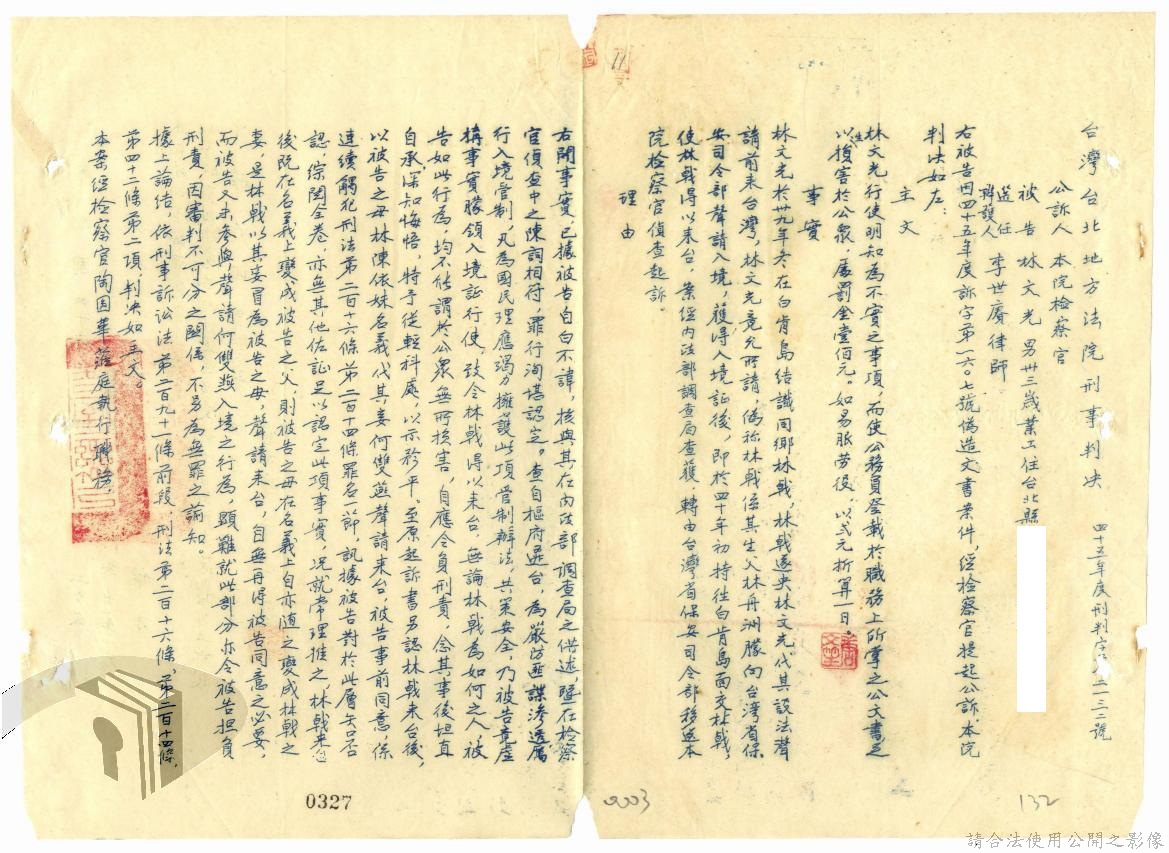 台灣台北地方法院刑事判决　四十五年度刑判字　二一三二號
公訴人　本院檢察官
被告　林文光　男卅三歲業工住台北縣
選任辯護人　李世賡律師
右被告因四十五年度訴字第一六○七號偽造文書案件，經檢察官提起公訴，本院
判决如左：
主文
林文光行使明知為不實之事項，而使公務員登載於職務上所掌之公文書足
以損害於公眾，處罰金壹佰元。如易服勞役，以弍元折算一日。
事實
林文光於卅九年冬在白肯島結識同鄉林戟，林戟遂央林文光代其設法聲
請前來台灣，林文光竟允所請，偽称林戟係其生父林舟洲朦向台灣省保
安司令部聲請入境，獲得入境証後，即於四十年初持往白肯島面交林戟，
使林戟得以來台，案經內政部調查局查獲，轉由台灣省保安司令部移送本
院檢察官偵查起訴。
理由
右開事實，已據被告自白不諱，核與其在內政部調查局之供述，暨在檢察
官偵查中之陳詞相符，罪行洵堪認定。查自樞府遷台，為嚴防匪諜滲透厲
行入境管制，凡為國民理應竭力擁護此項管制辦法，共策安全，乃被告竟虛
構事實朦領入境証行使，致令林戟得以來台，無論林戟為如何之人，被
告如此行為，均不能謂於公眾無所損害，自應令負刑責，念其事後坦直
自承，深知悔悟，特予從輕科處，以示矜平。至原起訴書另認林戟來台後，
以被告之母林陳依妹名義代其妾何雙燕聲請來台，被告事前同意，係
連續觸犯刑法第二百十六條第二百十四條罪名一節，訊據被告對於此層矢口否
認，綜閱全卷，亦無其他佐証足以認定此項事實，况就常理推之，林戟來台
後既在名義上變成被告之父，則被告之母在名義上自亦随之變成林戟之
妻，是林戟以其妾冒為被告之母，聲請來台，自無再得被告同意之必要，
而被告又未參與聲請何雙燕入境之行為，顯難就此部分亦令被告担負
刑責，因審判不可分之關係，不另為無罪之諭知。
據上論結，依刑事訴訟法第二百九十一條前段，刑法第二百十六條、第二百十四條、
第四十二條第二項，判决如主文。
本案經檢察官陶因華蒞庭執行職務。
11
0327
0003
132
請合法使用公開之影像